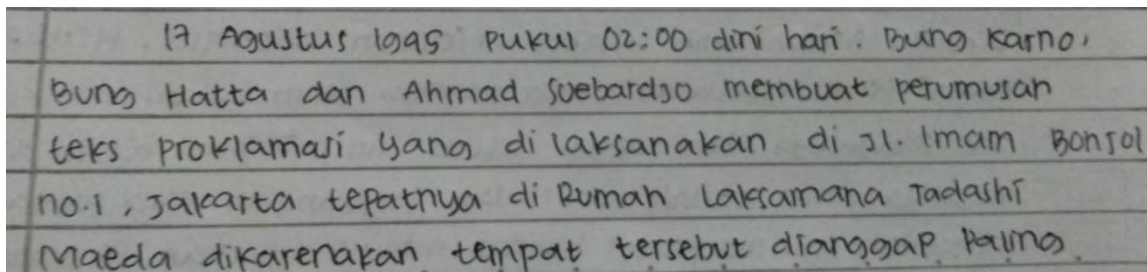 17 Agustus 1945 Pukul 02:00 dini hari. Bung Karno,
Bung Hatta dan Ahmad Soebardjo membuat perumusan
teks proklamasi yang di laksanakan di Jl. Imam Bonjol
no.1, Jakarta tepatnya di Rumah Laksamana Tadashi
Maeda dikarenakan tempat tersebut dianggap Paling